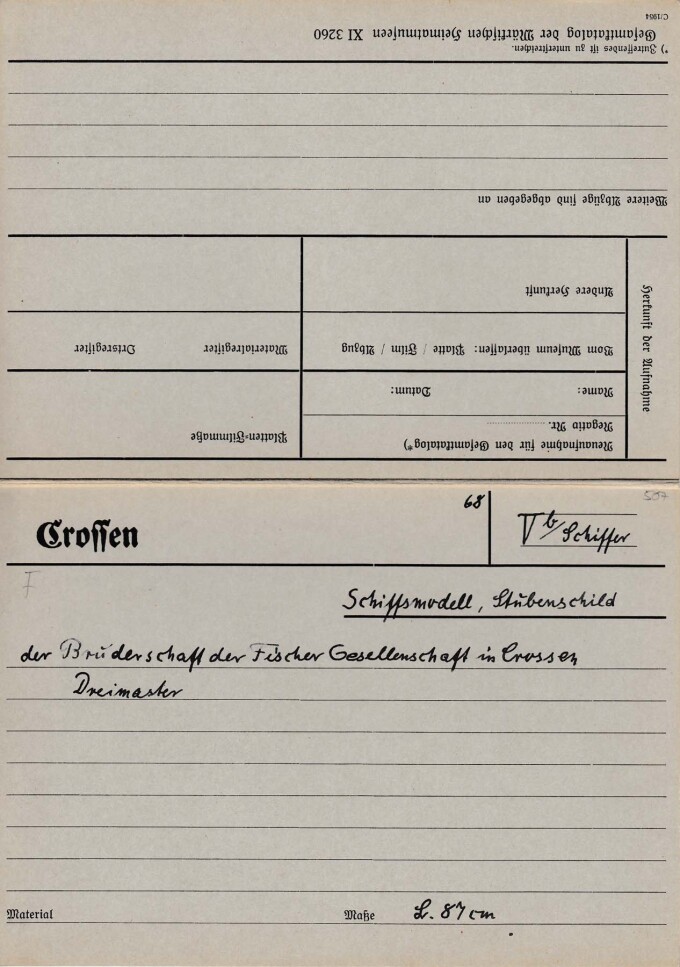 Crossen
68
V b/Schiffer
507
F
Schiffsmodell, Stubenschild
der Bruderschaft der Fischer Gesellenschaft in Crossen
Dreimaster
Material
Maße L. 87 cm
Herkunft der Aufnahme
Neuaufnahme für den Gesamtkatalog*)
Negativ Nr.
Name: Datum:
Platten-Filmmaße
Vom Museum überlassen: Platte / Film / Abzug
Materialregister Ortsregister
Andere Herkunft
Weitere Abzüge sind abgegeben an
*) Zutreffendes ist zu unterstreichen.
Gesamtkatalog der Märkischen Heimatmuseen XI 3260
C/1954